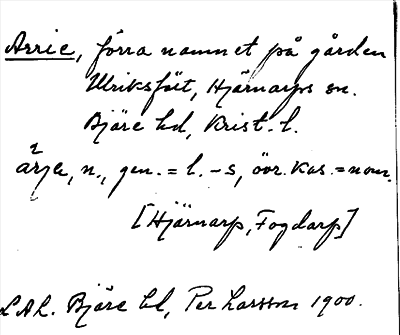 Arrie, förra namnet på gården
Ulriksfält, Hjärnarps sn.
Bjäre hd, Krist. l.
ärje, n., gen. = l. -s, övr. kas. = nom.
[Hjärnarp, Fogdarp]
LAL. Bjäre hd, Per Larsson 1900.